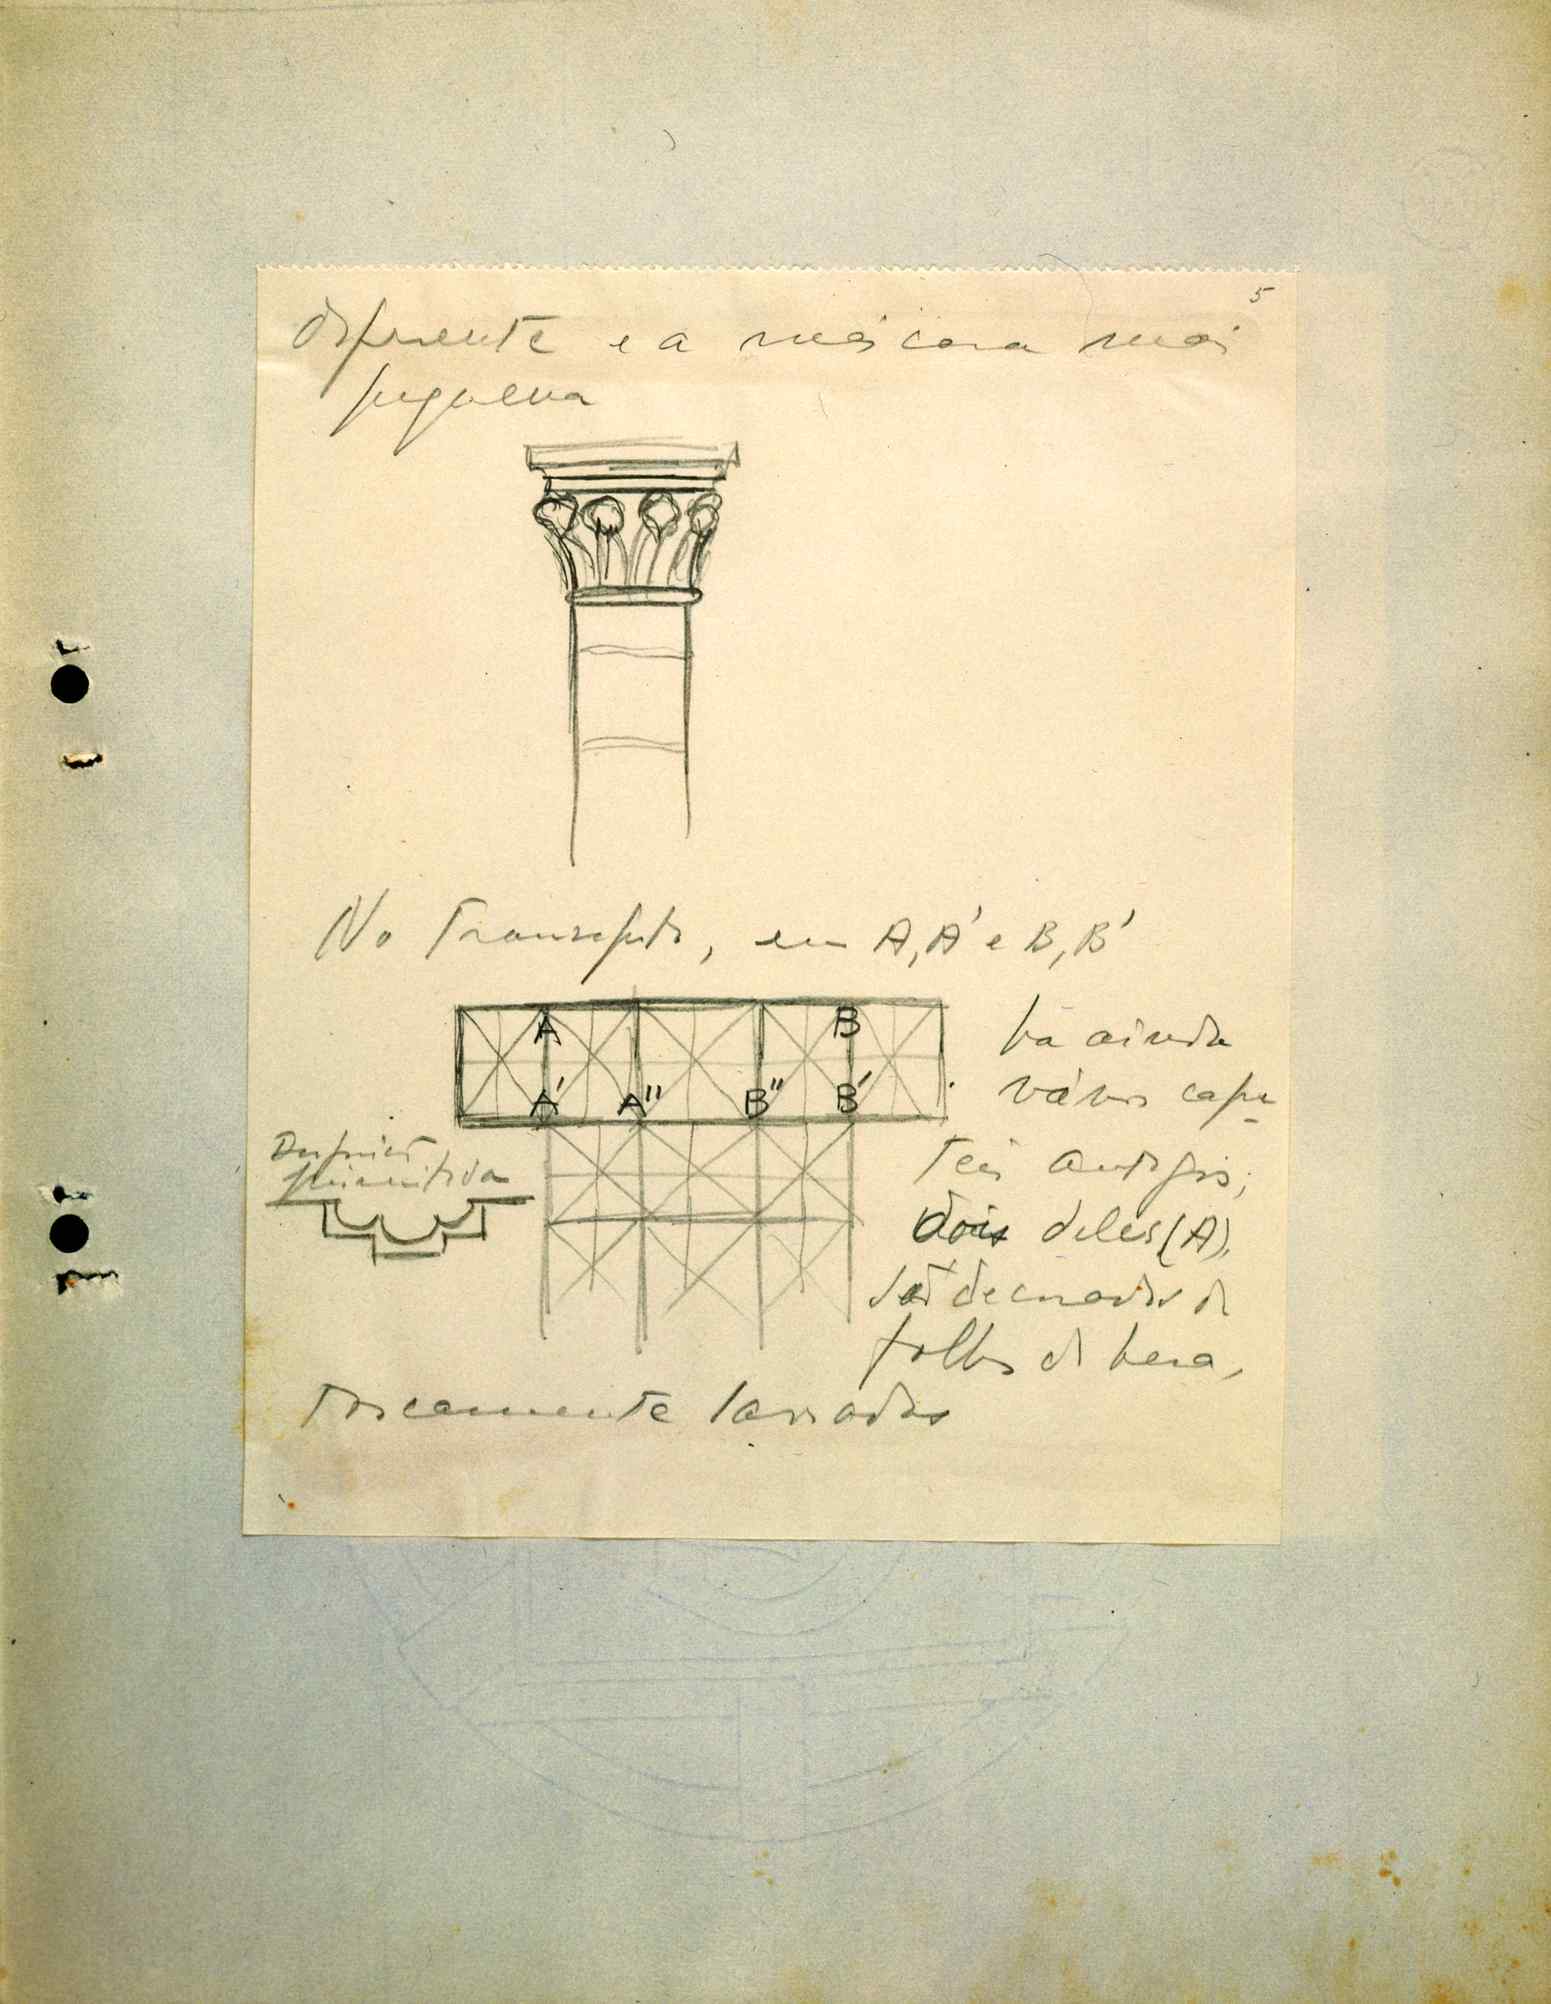 5
diferente e a máscara mais
pequena
No Transepto, em A, A' e B, B'
A B
A' A'' B'' B'
há ainda
vários capi-
teis antigos;
dois deles (A),
são decorados de
folhas de hera,
toscamente lavrados
primitiva